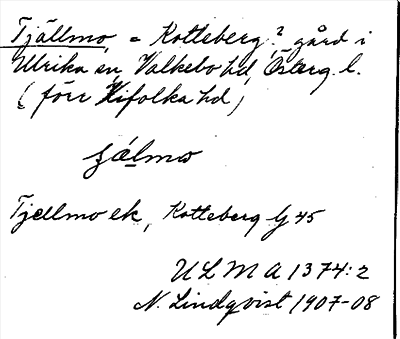 Tjällmo, = Kotteberg? gård i
Ulrika sn, Valkebo hd, Österg. l.
(förr Vifolka hd)
Tjellmo ek, Kotteberg Lj 45
ULMA 1374:2
N. Lindqvist 1907-08